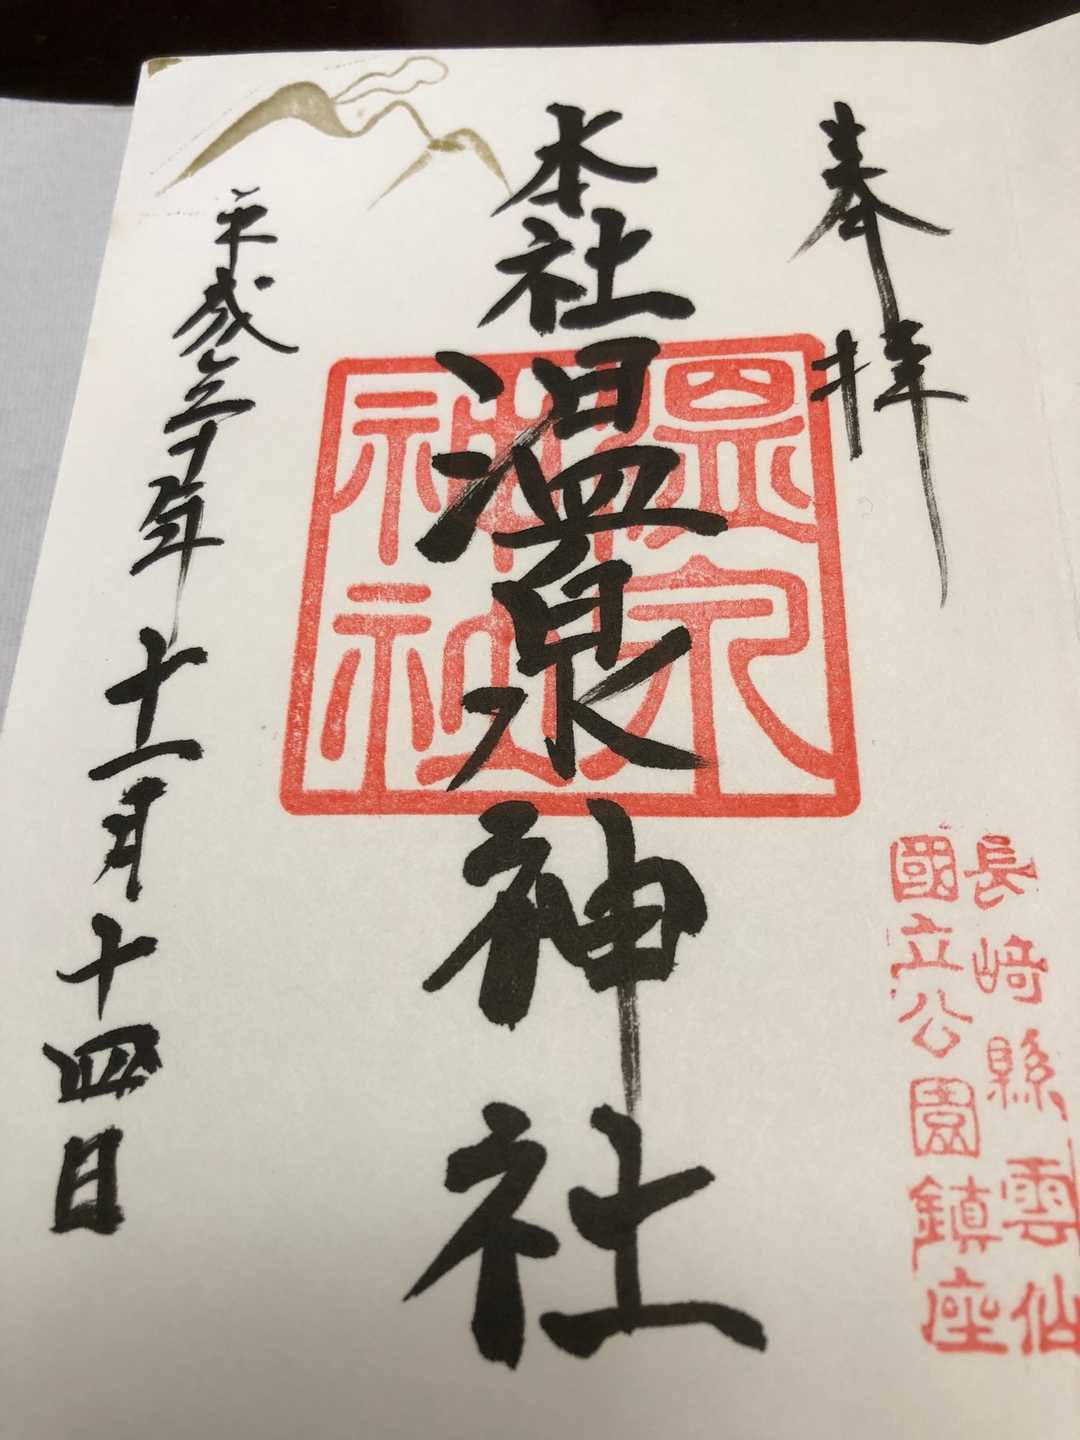 奉拝
長崎縣雲仙
國立公園鎮座
本社温泉神社
温泉
神社
平成三十年十一月十四日